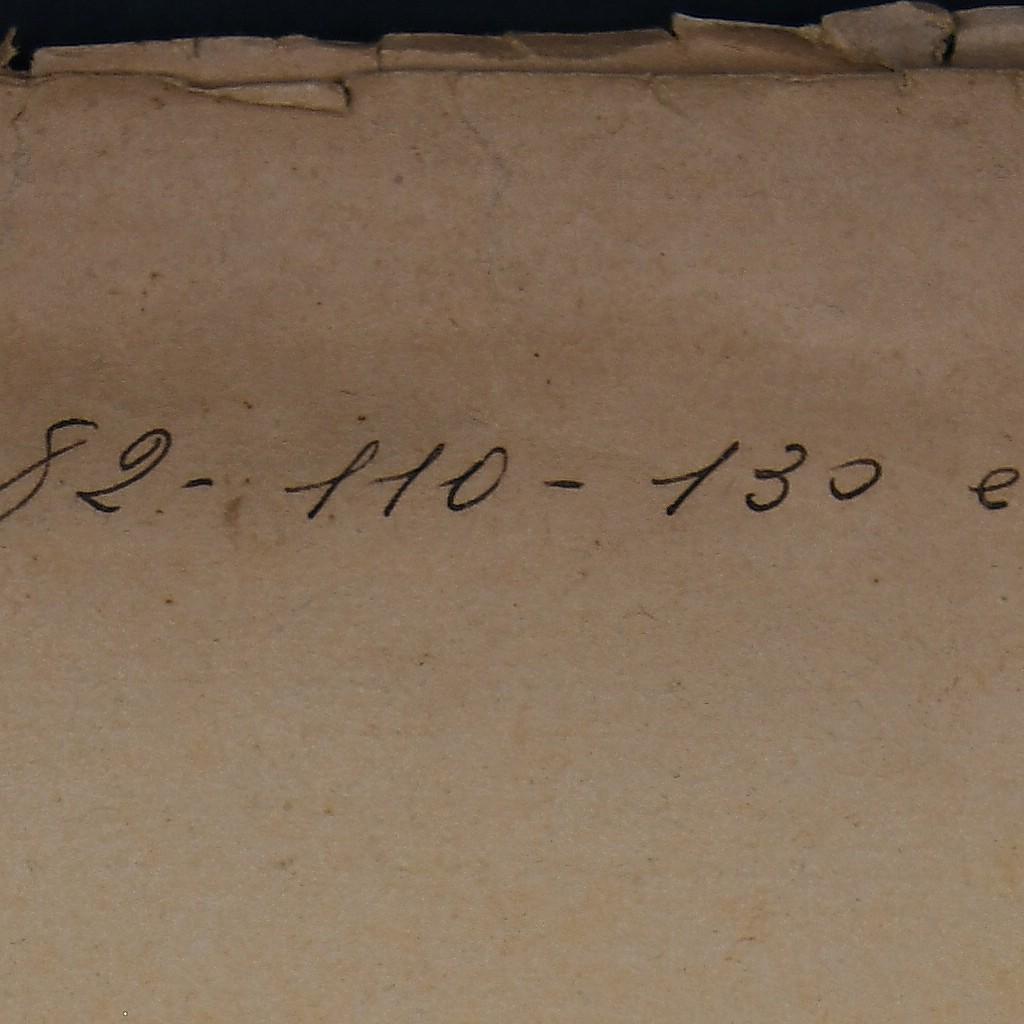 82 - 110 - 130 e